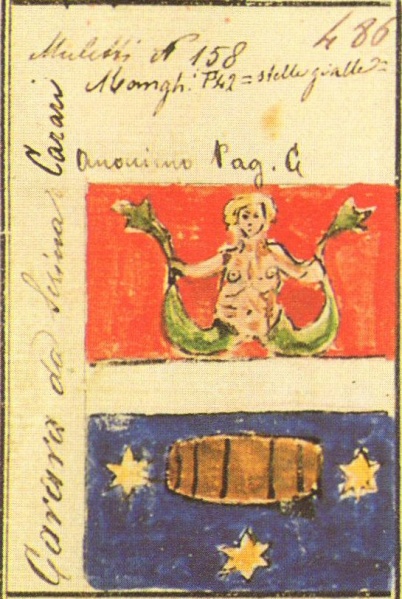 486
Muletti N 158
Mongh. P42 = stelle gialle =
anonimo Pag. G
Carara da Serina Carari